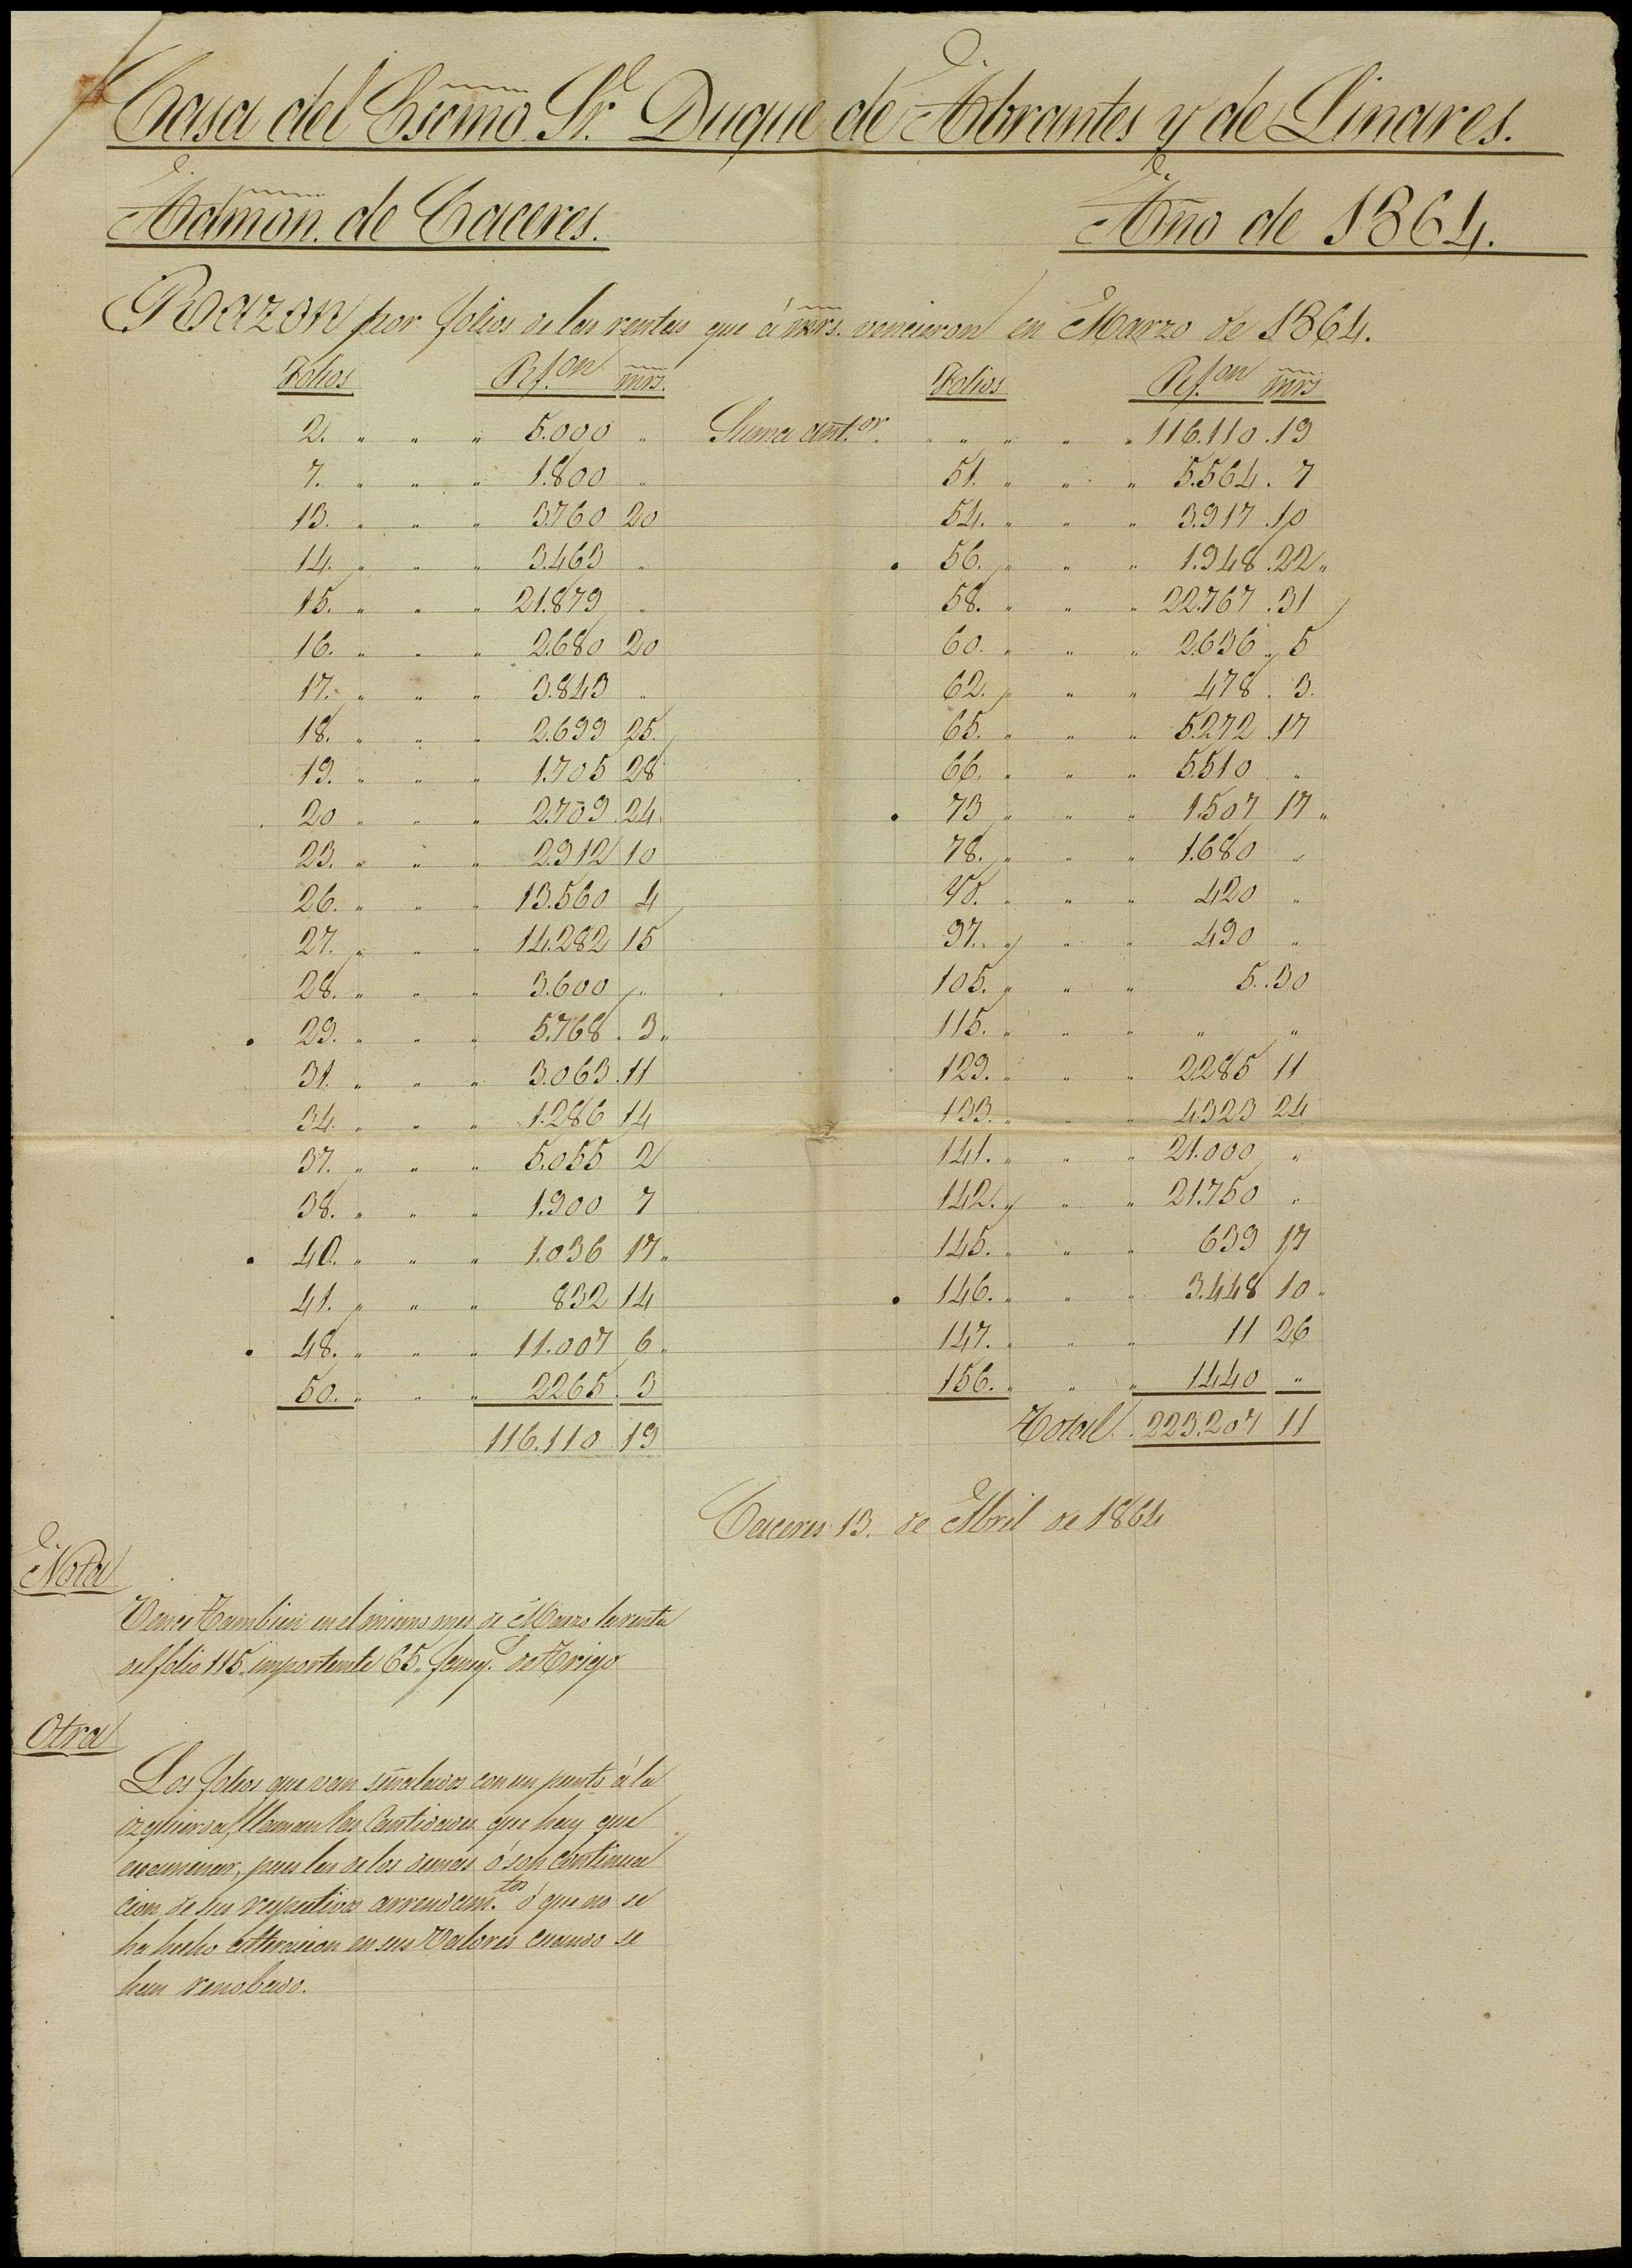 Casa del Escmo Sr. Duque de Abrantes y de Linares.
Admon. de Caceres.
Año de 1864.
Razon por folios de las rentas que á mrs. vencieron en Marzo de 1864.
Folios mrs.
2. " " " 5.000 "
7. " " " 1.800 "
13. " " " 3.760 20
14. " " " 3.463 "
15. " " " 21.879 "
16. " " " 2.680 20
17. " " " 3.843 "
18. " " " 2.699 25.
19. " " " 1.705 28
20 " " " 2.709 24.
23. " " " 2.912 10
26. " " " 13.560 4
27. " " " 14.282 15
28. " " " 3.600 "
. 29. " " " 5.768 . 3 "
31. " " " 3.063 . 11
34. " " " 1.286 14
37. " " " 5.055 2
38. " " " 1.900 7
. 40. " " " 1.036 17 "
41. " " " 832 14
. 48. " " " 11.007 6 "
50. " " " 2265 . 3
116.110 19
Folios mrs
Suma ant.or " " " " 116.110 . 19
51. " " " 5.564 . 7
54. " " " 3.917 . 10
. 56. " " " 1.948 . 22 "
58. " " " 22.767 . 31
60. " " " 2.636 " 5
62. " " " 478 . 3.
65. " " " 5.272 . 17
66. " " " 5.510 "
. 73 " " " 1.507 17 "
78. " " " 1.680 "
" " " 420 "
97. " " " 490 "
105. " " " 5. . 30
115. " " " " "
129. " " " 2.285 11
133. " " " 4.323 24
141. " " " 21.000 "
142. " " " 21.750 "
145. " " " 639 17
. 146. " " " 3.448 10 "
147. " " " 11 26
156. " " " 1.440 "
Total. 223.207 11
Caceres 13. de Abril de 1864
Nota
Vence tambien en el mismo mes de Marzo la renta
del folio 115. importante 65. faneg.s de trigo
Otra
Los folios que van señalados con un punto á la
izquierda, llaman las Cantidades que hay que
examinar, pues las de los demas ó son continua
cion de sus respectivos arrendam.tos ó que no se
ha hecho alteracion en sus Valores cuando se
han renobado.